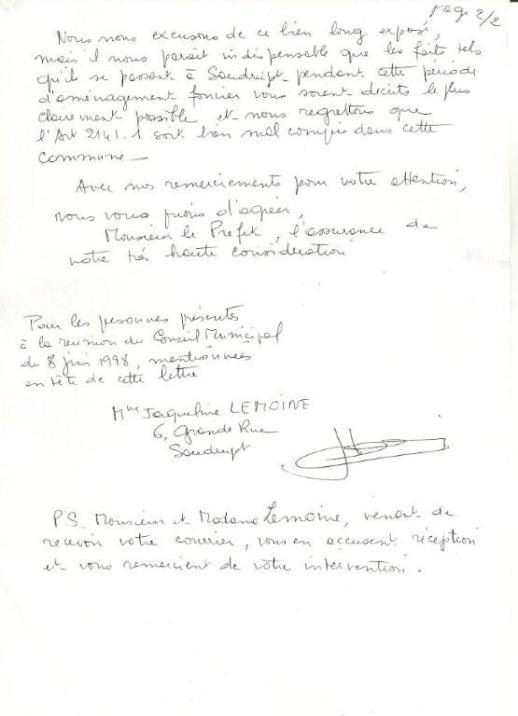 page 2/2
Nous nous excusons de ce bien long exposé,
mais il nous parait indispensable que les faits tels
qu'ils se passent à Saudrupt pendant cette période
d'aménagement foncier vous soient décrits le plus
clairement possible et nous regrettons que
l'Art 2141.1 soit bien mal compris dans cette
Commune_
Avec nos remerciements pour votre attention,
nous vous prions d'agréer,
Monsieur le Préfet, l'assurance de
notre très haute considération
Pour les personnes présentes
à la réunion du Conseil Municipal
du 8 juin 1998, mentionnées
en tête de cette lettre
Mme Jaqueline LEMOINE
6, Grande Rue
Saudrupt
P.S. Monsieur et Madame Lemoine, venant de
recevoir votre courrier, vous en accusent réception
et vous remercient de votre intervention.